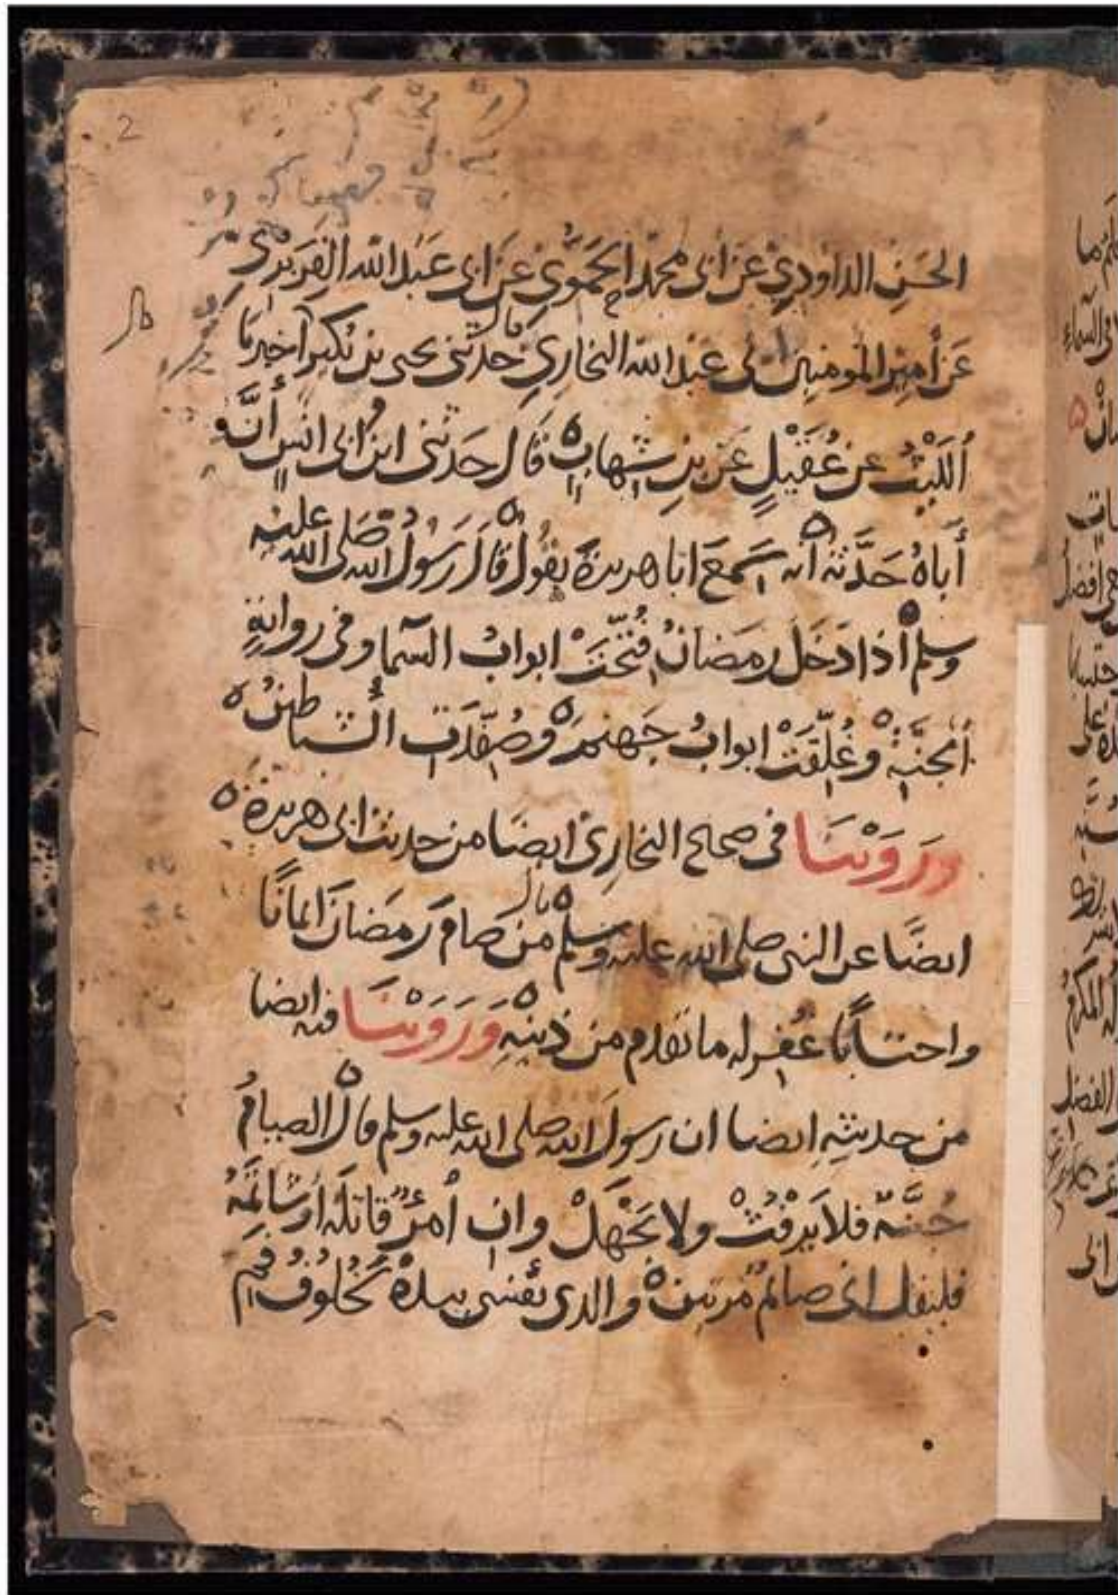 2
الحسن الداودي عن أبي محمد الحموي عن أبي عبد الله الفربري
عن أمير المومنين أبي عبد الله البخاري قال حدثني يحيى بن بكير أخبرنا
الليث عن عقيل عن بن شهاب ه قال حدثني ابن أبي أنس أن
أباه حدثه أنه سمع ابا هريرة يقول قال رسول الله صلى الله عليه
وسلم اذا دخل رمضان فتحت ابواب السما وفي رواية
الجنة وغلقت ابواب جهنم ه وصفدت الشياطين ه
وروينا في صحيح البخاري ايضا من حديث ابي هريرة ه
ايضًا عن النبي صلى الله عليه وسلم قال من صام رمضان ايمانًا
واحتسابًا غفر له ما تقدم من ذنبه ه وروينا فيه ايضا
من حديثه ايضا ان رسول الله صلى الله عليه وسلم قال الصيام
جُنَّة فلا يرفث ولا يجهل وان امرؤ قاتله أو شاتمه
فليقل اني صائم مرتين ه والذي نفسي بيده لخلوف فم